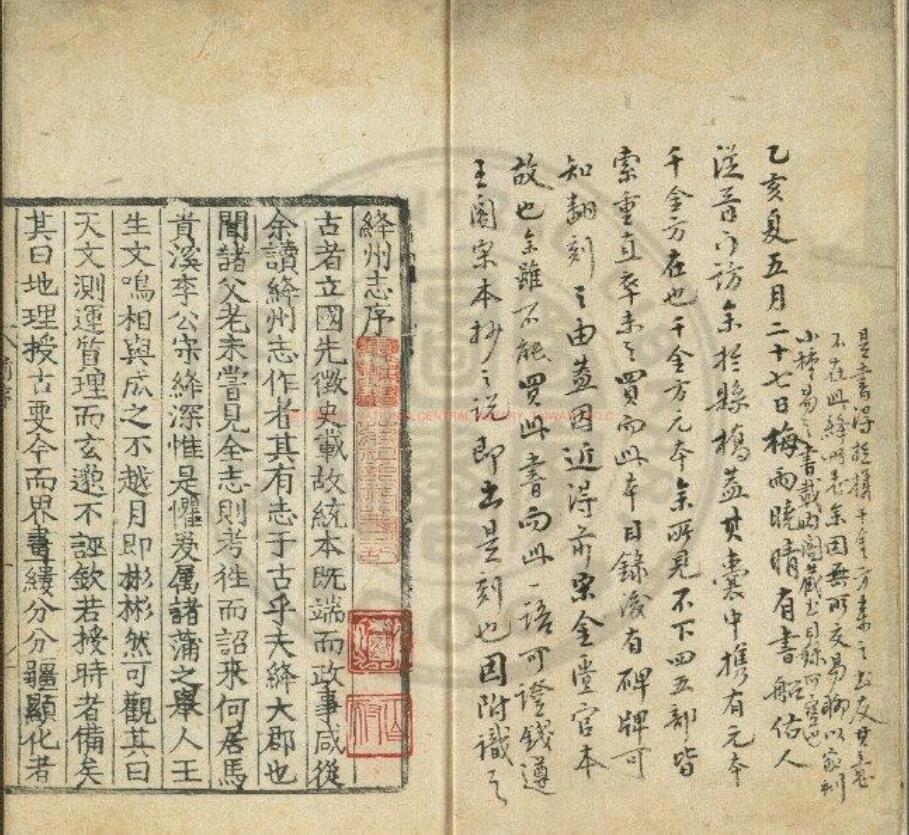 是書得於攜千金方來之書友其意
不在此絳州志余因無所交易聊以家刻
小種易之書載內閣藏書目錄可寶也
乙亥夏五月二十七日梅雨曉晴有書船估人
從昔門訪余於縣橋蓋其囊中攜有元本
千金方在也千金方元本余所見不下四五部皆
索重直率未之買而此本目錄後有碑牌可
知翻刻之由蓋因近得前宋金堂官本
故也余雖不能買此書而此一語可證錢遵
王閣宋本抄之說即出是刻也因附識之
絳州志序
古者立國先徵史載故統本既端而政事咸從
余讀絳州志作者其有志于古乎夫絳大郡也
聞諸父老未嘗見全志則考徃而詔来何居馬
貢溪李公宋絳深惟是懼爰屬諸蒲之舉人王
生文鳴相與成之不越月即彬彬然可觀其曰
天文測運質理而玄邈不誣欽若授時者備矣
其曰地理授古要今而界畫縷分分疆顯化者